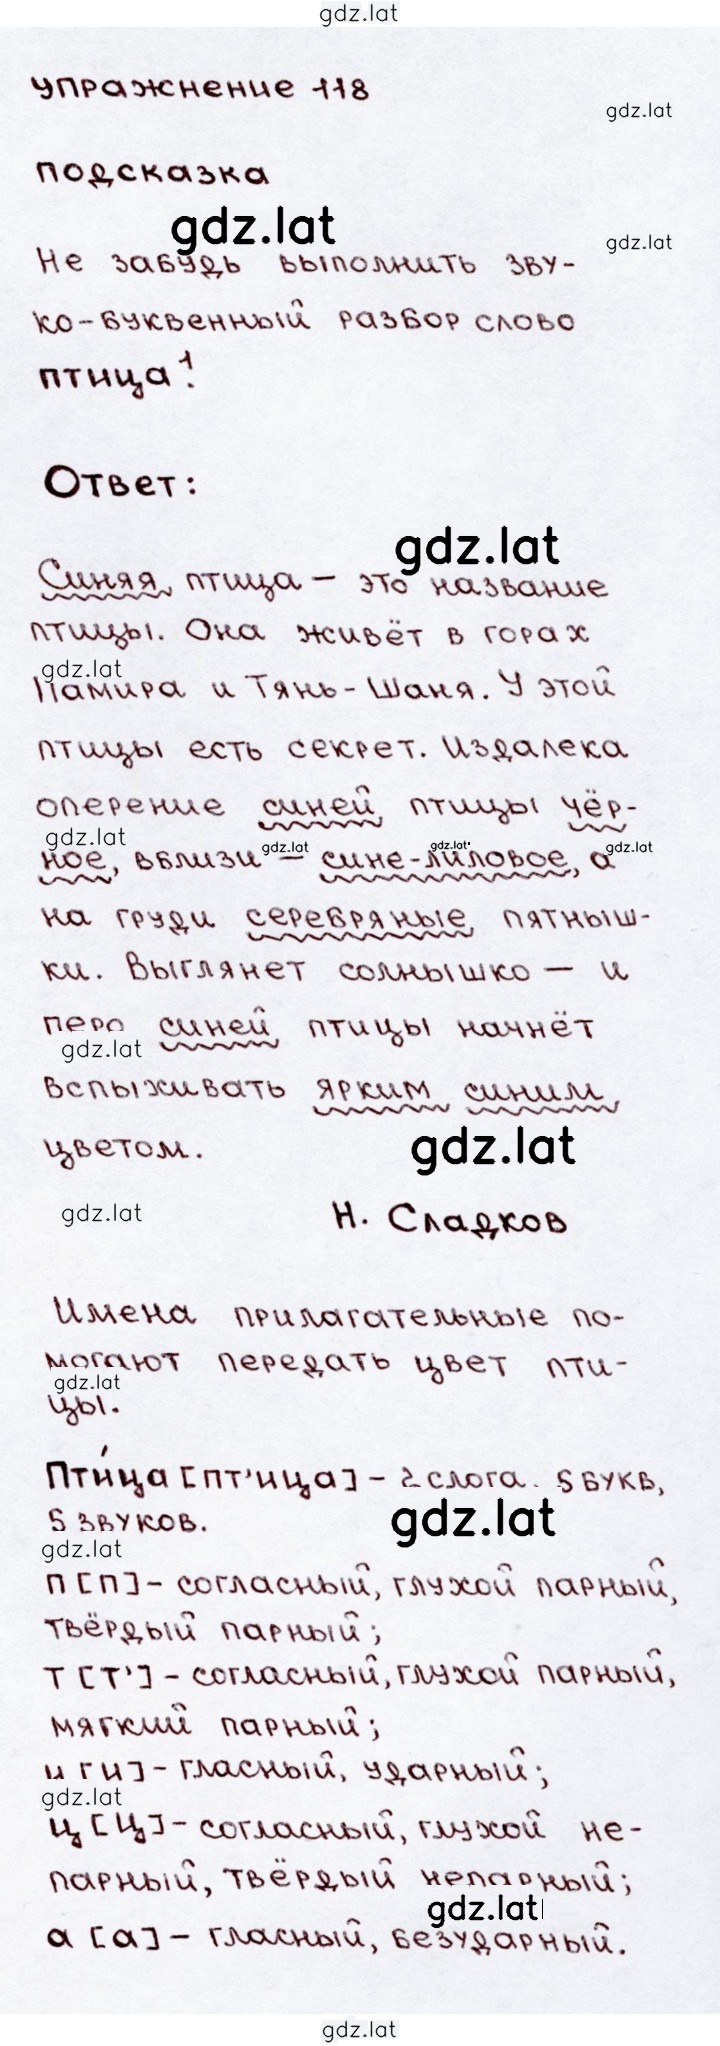 gdz.lat
упражнение 118
gdz.lat
подсказка
gdz.lat
gdz.lat
Не забудь выполнить зву-
ко-буквенный разбор слово
птица!
Ответ:
gdz.lat
Синяя птица – это название
птицы. Она живёт в горах
gdz.lat
Памира и Тянь-Шаня. У этой
птицы есть секрет. Издалека
оперение синей птицы чёр-
gdz.lat
gdz.lat
gdz.lat
gdz.lat
ное, вблизи – сине-лиловое, а
на груди серебряные пятныш-
ки. Выглянет солнышко – и
перо синей птицы начнёт
gdz.lat
вспыхивать ярким синим
цветом.
gdz.lat
gdz.lat
Н. Сладков
Имена прилагательные по-
могают передать цвет пти-
gdz.lat
цы.
Пти́ца [пт'ица] – 2 слога. 5 букв,
5 звуков.
gdz.lat
gdz.lat
п [п] – согласный, глухой парный,
твёрдый парный;
т [т'] – согласный, глухой парный,
мягкий парный;
и [и] – гласный, ударный;
gdz.lat
ц [ц] – согласный, глухой не-
парный, твёрдый непарный;
gdz.lat
а [а] – гласный, безударный.
gdz.lat